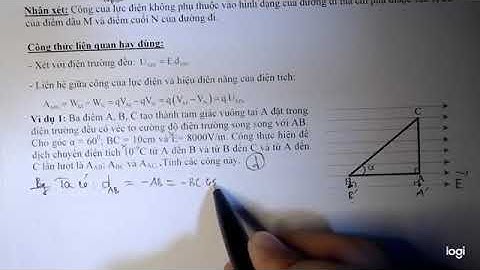 Nhận xét: Công của lực điện không phụ thuộc vào hình dạng của đường đi mà chỉ phụ thuộc vào vị trí
của điểm đầu M và điểm cuối N của đường đi.
Công thức liên quan hay dùng:
- Xét với điện trường đều: U_MN = E.d_MN
- Liên hệ giữa công của lực điện và hiệu điện năng của điện tích:
A_MN = W_M - W_N = qV_M - qV_N = q(V_M - V_N) = q.U_MN
Ví dụ 1: Ba điểm A, B, C tạo thành tam giác vuông tại A đặt trong
điện trường đều có véc tơ cường độ điện trường song song với AB.
Cho góc α = 60⁰, BC = 10cm và E = 8000V/m. Công thực hiện để
dịch chuyển điện tích C từ A đến B và từ B đến C và từ A đến
C lần lượt là A_AB; A_BC và A_AC. Tính các công này.
Bg Ta có d_AB = -AB = -BC cos
C
α
B A
B' A'
E
logi